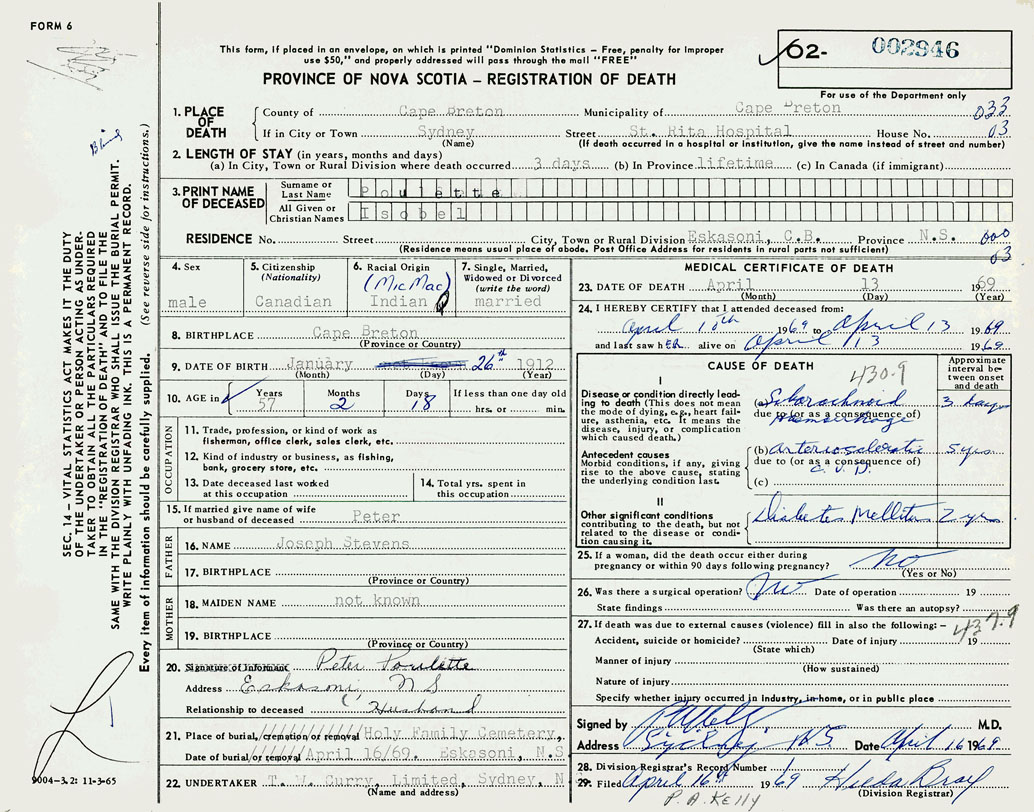 FORM 6
This form, if placed in an envelope, on which is printed "Dominion Statistics – Free, penalty for improper
use $50," and properly addressed will pass through the mail "FREE"
PROVINCE OF NOVA SCOTIA – REGISTRATION OF DEATH
62- 002946
For use of the Department only
1. PLACE OF DEATH
County of Cape Breton Municipality of Cape Breton 033
If in City or Town Sydney Street St. Rita Hospital House No. 03
(Name) (If death occurred in a hospital or institution, give the name instead of street and number)
2. LENGTH OF STAY (in years, months and days)
(a) In City, Town or Rural Division where death occurred 3 days (b) In Province lifetime (c) In Canada (if immigrant)
3. PRINT NAME OF DECEASED
Surname or Last Name Poulette
All Given or Christian Names Isobel
RESIDENCE No. Street City, Town or Rural Division Eskasoni, C.B. Province N.S. 000
(Residence means usual place of abode. Post Office Address for residents in rural parts not sufficient) 03
4. Sex male
5. Citizenship (Nationality) Canadian
6. Racial Origin (MicMac) Indian
7. Single, Married, Widowed or Divorced (write the word) married
8. BIRTHPLACE Cape Breton
(Province or Country)
9. DATE OF BIRTH January 26th 1912
(Month) (Day) (Year)
10. AGE in Years 57 Months 2 Days 18 If less than one day old hrs. or min.
OCCUPATION
11. Trade, profession, or kind of work as fisherman, office clerk, sales clerk, etc.
12. Kind of industry or business, as fishing, bank, grocery store, etc.
13. Date deceased last worked at this occupation
14. Total yrs. spent in this occupation
15. If married give name of wife or husband of deceased Peter
FATHER
16. NAME Joseph Stevens
17. BIRTHPLACE
(Province or Country)
MOTHER
18. MAIDEN NAME not known
19. BIRTHPLACE
(Province or Country)
20. Signature of informant Peter Poulette
Address Eskasoni, N S
Relationship to deceased Husband
21. Place of burial, cremation or removal Holy Family Cemetery,
Date of burial or removal April 16/69. Eskasoni, N.S.
22. UNDERTAKER T. W. Curry, Limited, Sydney, N
(Name and address)
MEDICAL CERTIFICATE OF DEATH
23. DATE OF DEATH April 13 1969
(Month) (Day) (Year)
24. I HEREBY CERTIFY that I attended deceased from:
April 10th 1969 to April 13 1969
and last saw hER alive on April 13 1969
CAUSE OF DEATH
Approximate interval between onset and death
430.9
I
Disease or condition directly leading to death (This does not mean the mode of dying, e.g., heart failure, asthenia, etc. It means the disease, injury, or complication which caused death.)
(a) Subarachnoid 3 days
due to (or as a consequence of)
Haemorrhage
Antecedent causes
Morbid conditions, if any, giving rise to the above cause, stating the underlying condition last.
(b) arteriosclerotic 5 yrs
due to (or as a consequence of)
(c)
II
Other significant conditions contributing to the death, but not related to the disease or condition causing it.
Diabetes Mellitus 2 yrs
25. If a woman, did the death occur either during pregnancy or within 90 days following pregnancy? no
(Yes or No)
26. Was there a surgical operation? No Date of operation 19
State findings Was there an autopsy?
27. If death was due to external causes (violence) fill in also the following: – 437.9
Accident, suicide or homicide? Date of injury 19
(State which)
Manner of injury
(How sustained)
Nature of injury
Specify whether injury occurred in industry, in-home, or in public place
Signed by M.D.
Address Sydney NS Date April 16 1969
28. Division Registrar's Record Number
29. Filed April 16th 1969 Hilda Bray
(Division Registrar)
P.A. KELLY
Blind
SEC. 14 – VITAL STATISTICS ACT MAKES IT THE DUTY
OF THE UNDERTAKER OR PERSON ACTING AS UNDER-
TAKER TO OBTAIN ALL THE PARTICULARS REQUIRED
IN THE "REGISTRATION OF DEATH" AND TO FILE THE
SAME WITH THE DIVISION REGISTRAR WHO SHALL ISSUE THE BURIAL PERMIT.
WRITE PLAINLY WITH UNFADING INK. THIS IS A PERMANENT RECORD.
Every item of information should be carefully supplied. (See reverse side for instructions.)
9004-3.2: 11-3-65